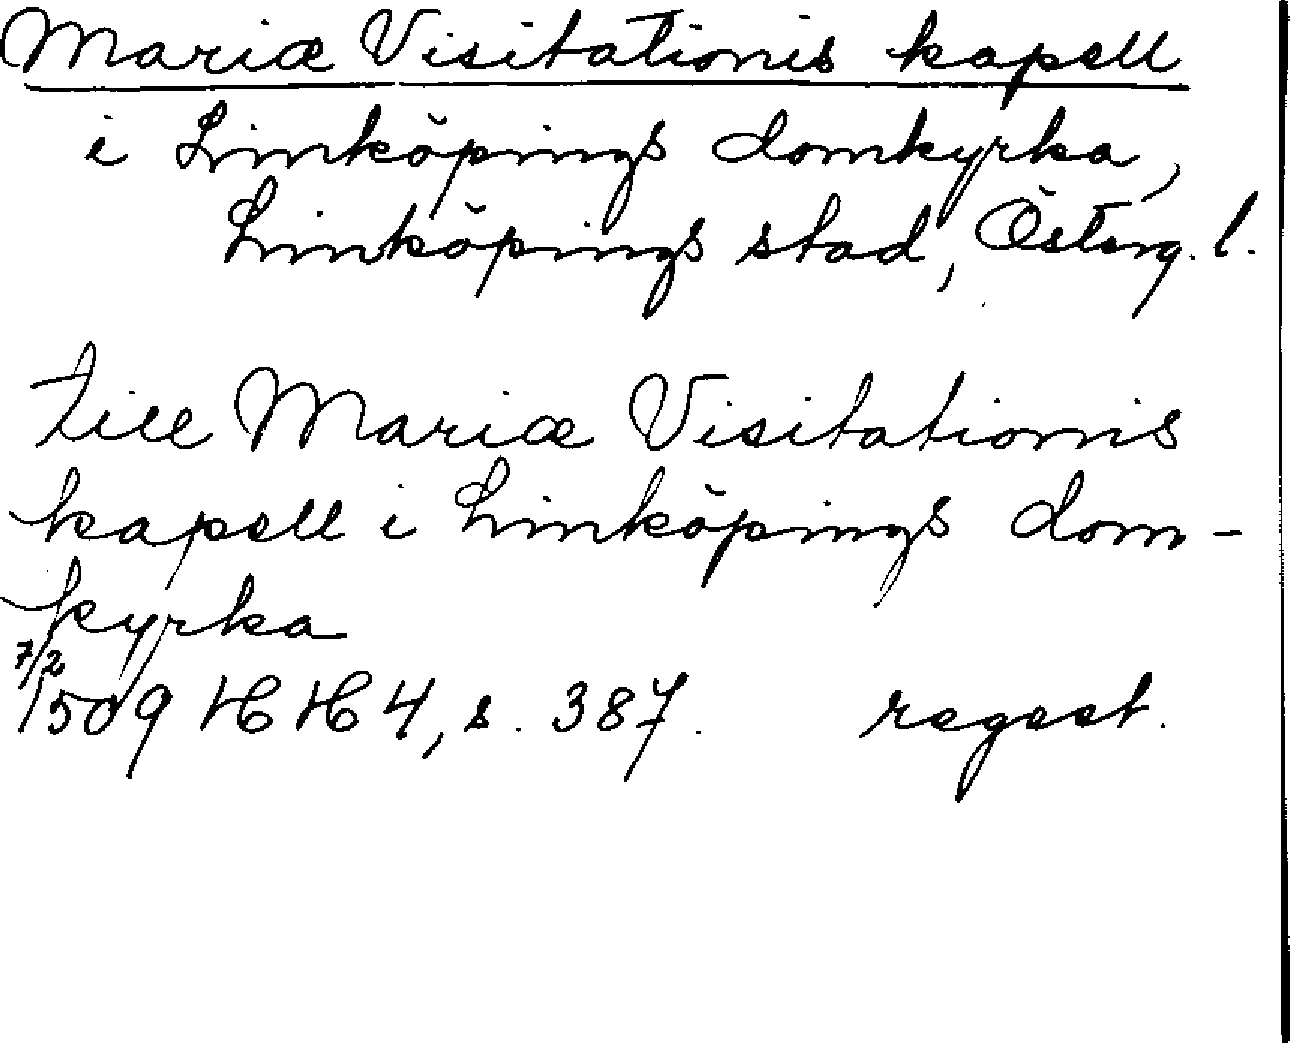 Mariæ Visitationis kapell
i Linköpings domkyrka,
Linköpings stad, Österg. l.
till Mariæ Visitationis
kapell i Linköpings dom-
kyrka
7/2
1509 HH 4, s. 387. regest.